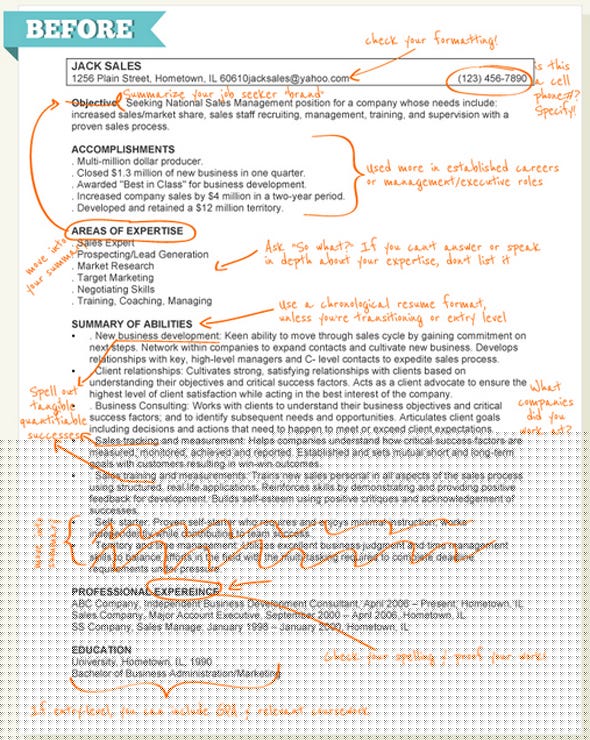 BEFORE
check your formatting!
JACK SALES
1256 Plain Street, Hometown, IL 60610jacksales@yahoo.com
(123) 456-7890
is this
a cell
phone#?
Specify!
Summarize your job seeker "brand"
Objective: Seeking National Sales Management position for a company whose needs include:
increased sales/market share, sales staff recruiting, management, training, and supervision with a
proven sales process.
ACCOMPLISHMENTS
. Multi-million dollar producer.
. Closed $1.3 million of new business in one quarter.
. Awarded "Best in Class" for business development.
. Increased company sales by $4 million in a two-year period.
. Developed and retained a $12 million territory.
Used more in established careers
or management/executive roles
AREAS OF EXPERTISE
. Sales Expert
. Prospecting/Lead Generation
. Market Research
. Target Marketing
. Negotiating Skills
. Training, Coaching, Managing
move into
your summary
Ask "So what?" If you can't answer or speak
in depth about your expertise, don't list it
Use a chronological resume format,
unless you're transitioning or entry level
SUMMARY OF ABILITIES
• . New business development: Keen ability to move through sales cycle by gaining commitment on
next steps. Network within companies to expand contacts and cultivate new business. Develops
relationships with key, high-level managers and C- level contacts to expedite sales process.
• . Client relationships: Cultivates strong, satisfying relationships with clients based on
understanding their objectives and critical success factors. Acts as a client advocate to ensure the
highest level of client satisfaction while acting in the best interest of the company.
• . Business Consulting: Works with clients to understand their business objectives and critical
success factors; and to identify subsequent needs and opportunities. Articulates client goals
including decisions and actions that need to happen to meet or exceed client expectations.
Spell out
tangible
quantifiable
successes
What
companies
did you
work at?
• . Sales tracking and measurement: Helps companies understand how critical success factors are
measured, monitored, achieved and reported. Established and sets mutual short and long-term
goals with customers resulting in win-win outcomes.
• . Sales training and measurements: Trains new sales personal in all aspects of the sales process
using structured, real life applications. Reinforces skills by demonstrating and providing positive
feedback for development. Builds self-esteem using positive critiques and acknowledgement of
successes.
• . Self- starter: Proven self-starter who requires and enjoys minimal instruction, works
independently while contributing to team success.
• . Territory and time management: Utilizes excellent business judgment and time management
skills to balance efforts in the field with the multitasking required to complete deadline
requirements under pressure.
move into
summary
PROFESSIONAL EXPEREINCE
ABC Company, Independent Business Development Consultant, April 2006 – Present, Hometown, IL
Sales Company, Major Account Executive, September 2000 – April 2006, Hometown, IL
SS Company, Sales Manage, January 1998 – January 2000, Hometown, IL
EDUCATION
University, Hometown, IL, 1990
Bachelor of Business Administration/Marketing
Check your spelling & proof your work!
If entry-level, you can include GPA & relevant coursework